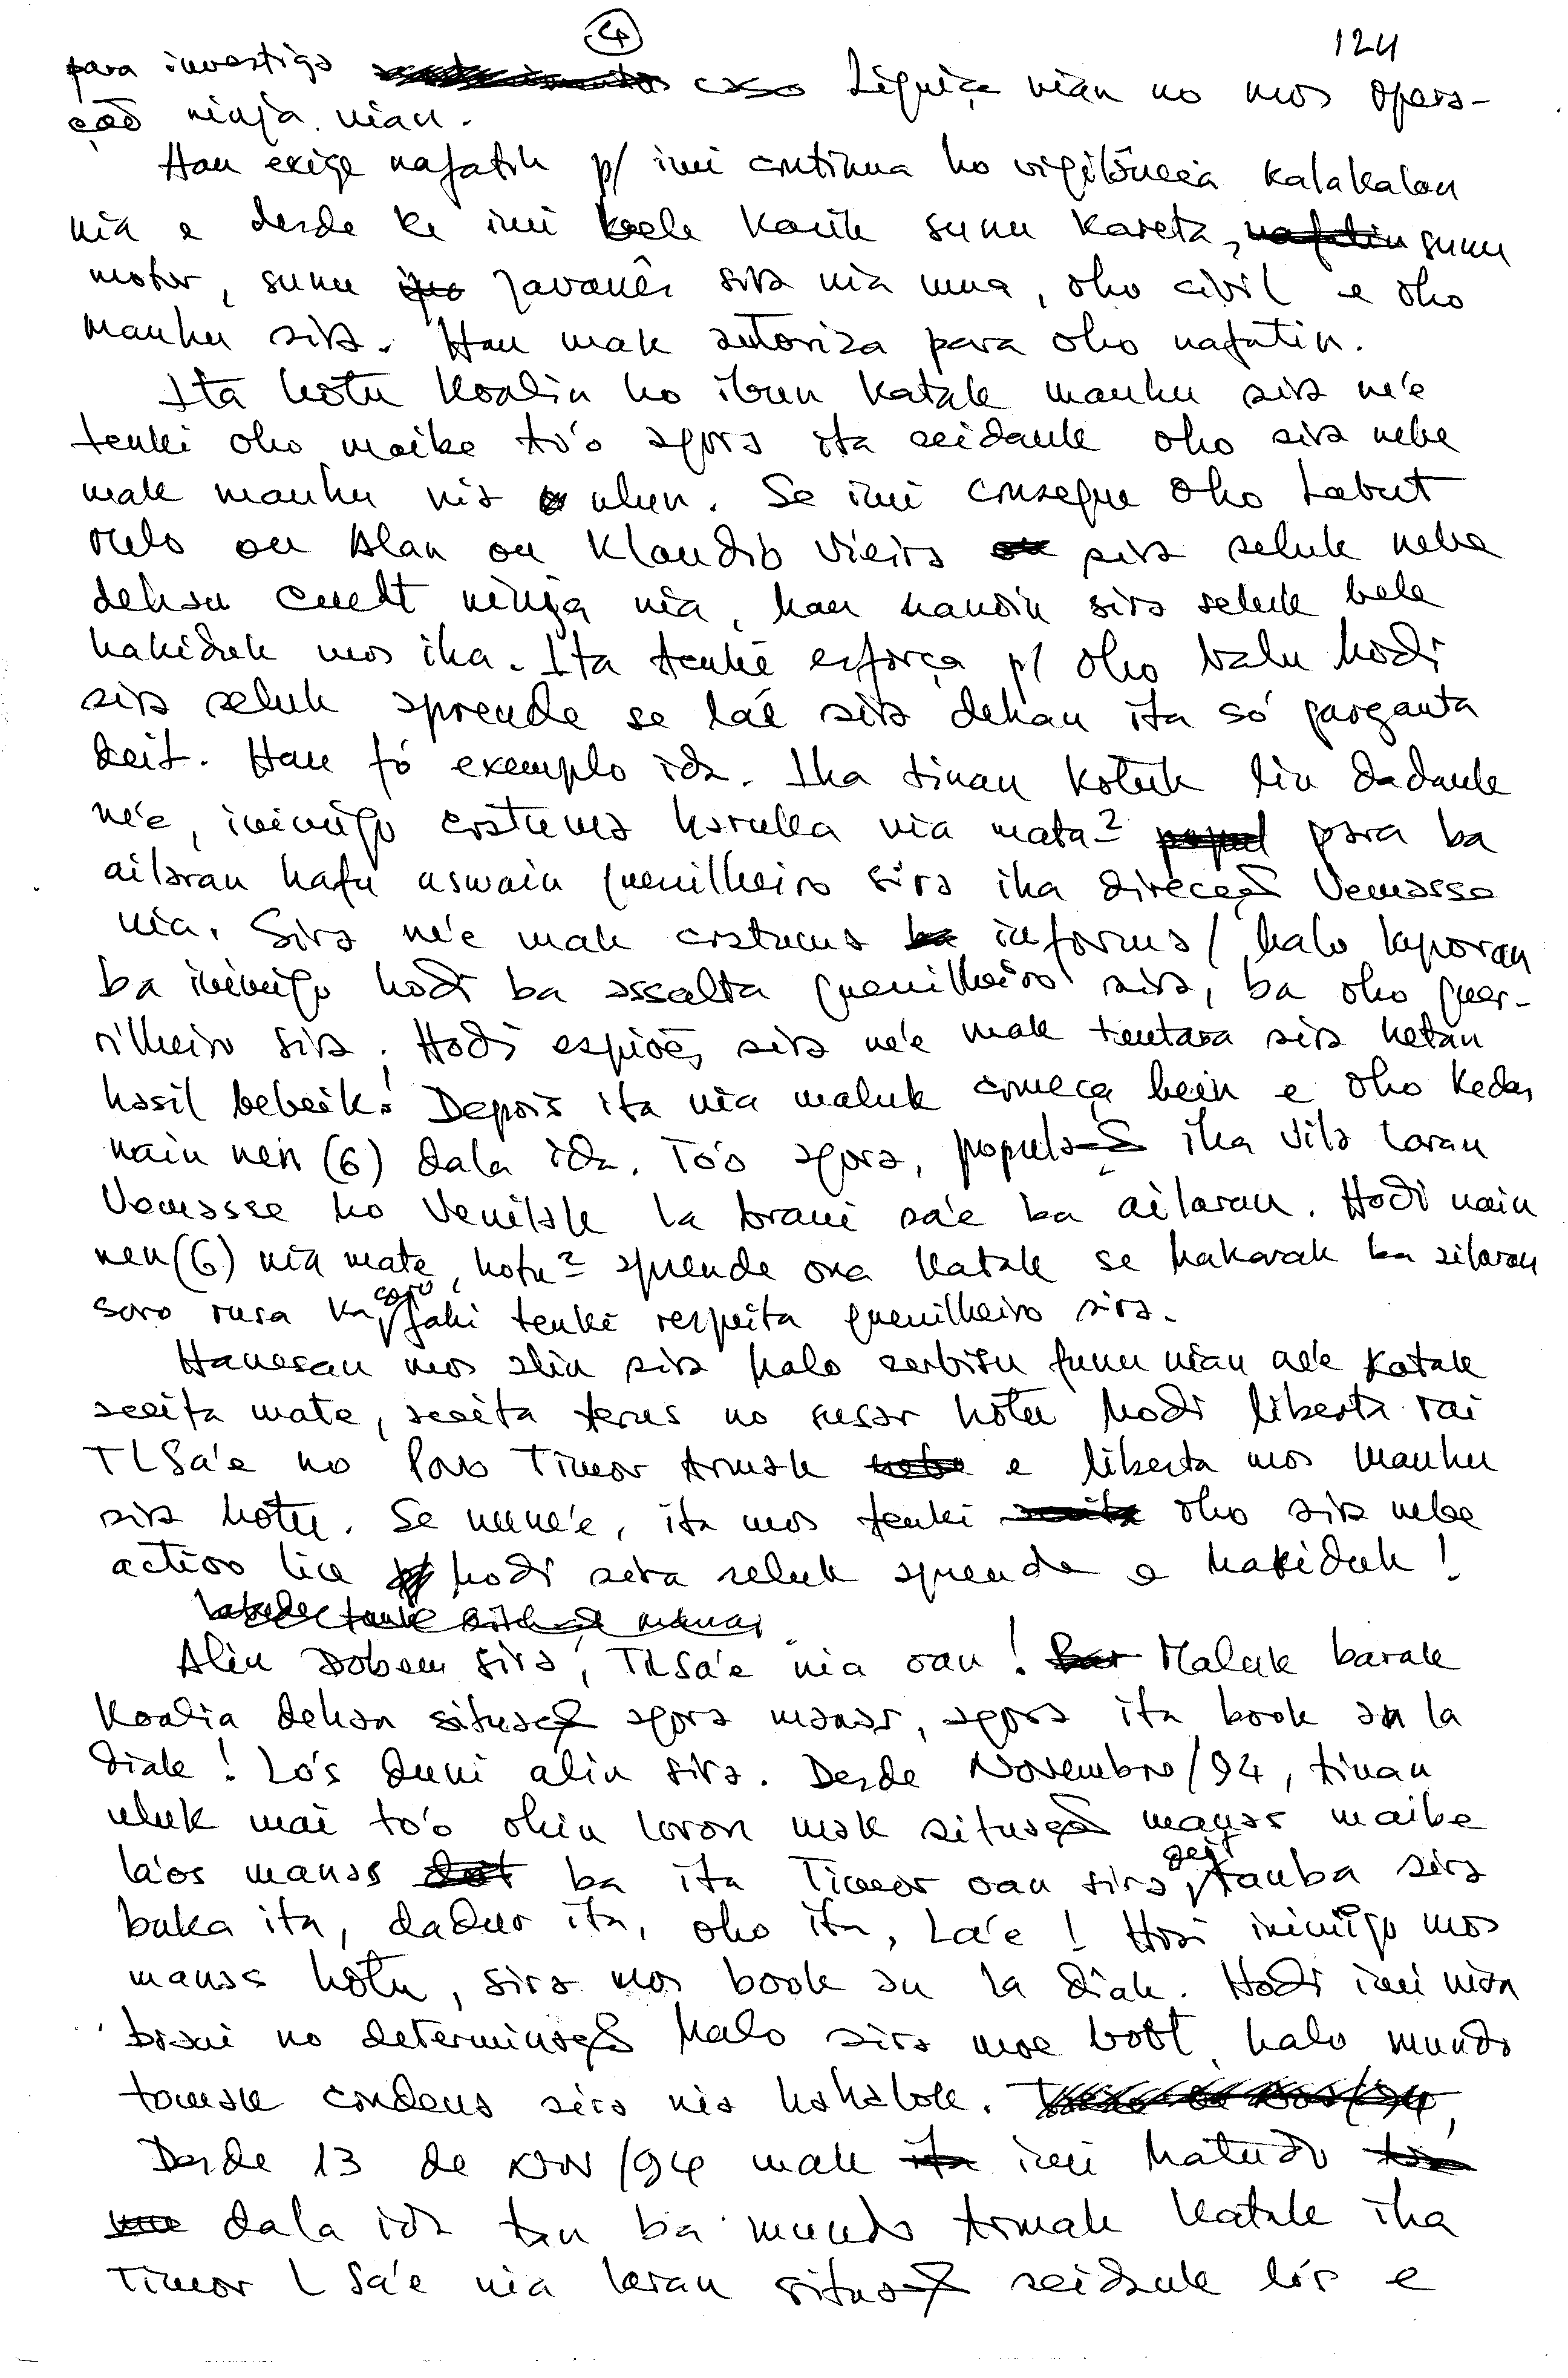 4 124
para investiga caso Liquiça nian no mos opera-
ção ninja nian.
Hau exige nafatin p/ imi continua ho vigilância kalakalan
nia e desde ke imi bele karik sunu kareta, sunu
motor, sunu javanês sira nia uma, oho civil e oho
mauhu sira. Hau mak autoriza para oho nafatin.
Ita hotu koalia ho ibun katak mauhu sira ne'e
tenki oho maike to'o agora ita seidauk oho sira nebe
mak mauhu nia ulun. Se imi consegue oho Labut
Melo ou Alan ou Klaudio Vieira sira seluk nebe
dehan cuelt ninja nia, hau hanoin sira seluk bele
hakiduk mos iha. Ita tenki esforça p/ oho balu hodi
sira seluk aprende se lá'e sira dehan ita só garganta
deit. Hau fó exemplo ida. Iha tinan kotuk liu dadauk
ne'e, inimigo costuma haruka nia mata-2 para ba
ailaran hafu aswain guerrilheiro sira iha direcção Vemasse
nia. Sira ne'e mak costuma informa / halo laporan
ba inimigo hodi ba assalta guerrilheiro sira, ba oho guer-
rilheiro sira. Hodi espiões sira ne'e mak tentara sira hetan
hasil bebeik! Depois ita nia maluk começa hein e oho kedas
nain nen (6) dala ida. To'o agora, população iha vila laran
Vemasse ho Venilale la brani sa'e ba ailaran. Hodi nain
nen (6) nia mate, hotu-2 aprende ona katak se hakarak ba ailaran
soro rusa ka soro fahi tenki respeita guerrilheiro sira.
Hanesan mos alin sira halo serbisu funu nian ne'e katak
aceita mate, aceita terus no susar hotu hodi liberta rai
TLSa'e no Povo Timor tomak e liberta mos mauhu
sira hotu. Se nune'e, ita mos tenki oho sira nebe
activo liu hodi sira seluk aprende e hakiduk!
Alin Dobem sira, TLSa'e nia oan! Maluk barak
koalia dehan situação agora manas, agora ita book an la
diak! Lo's duni alin sira. Desde Novembro/94, tinan
uluk mai to'o ohin loron mak situação manas maibe
la'os manas ba ita Timor oan sira deit, tanba sira
buka ita, dadur ita, oho ita, La'e! Hosi inimigo mos
manas hotu, sira mos book an la diak. Hodi imi nian
brani no determinação halo sira moe boot, halo mundo
tomak condena sira nia hahalok.
Desde 13 de Nov/94 mak imi hatudu
dala ida tan ba mundo tomak katak iha
Timor L Sa'e nia laran situação seidauk lo's e